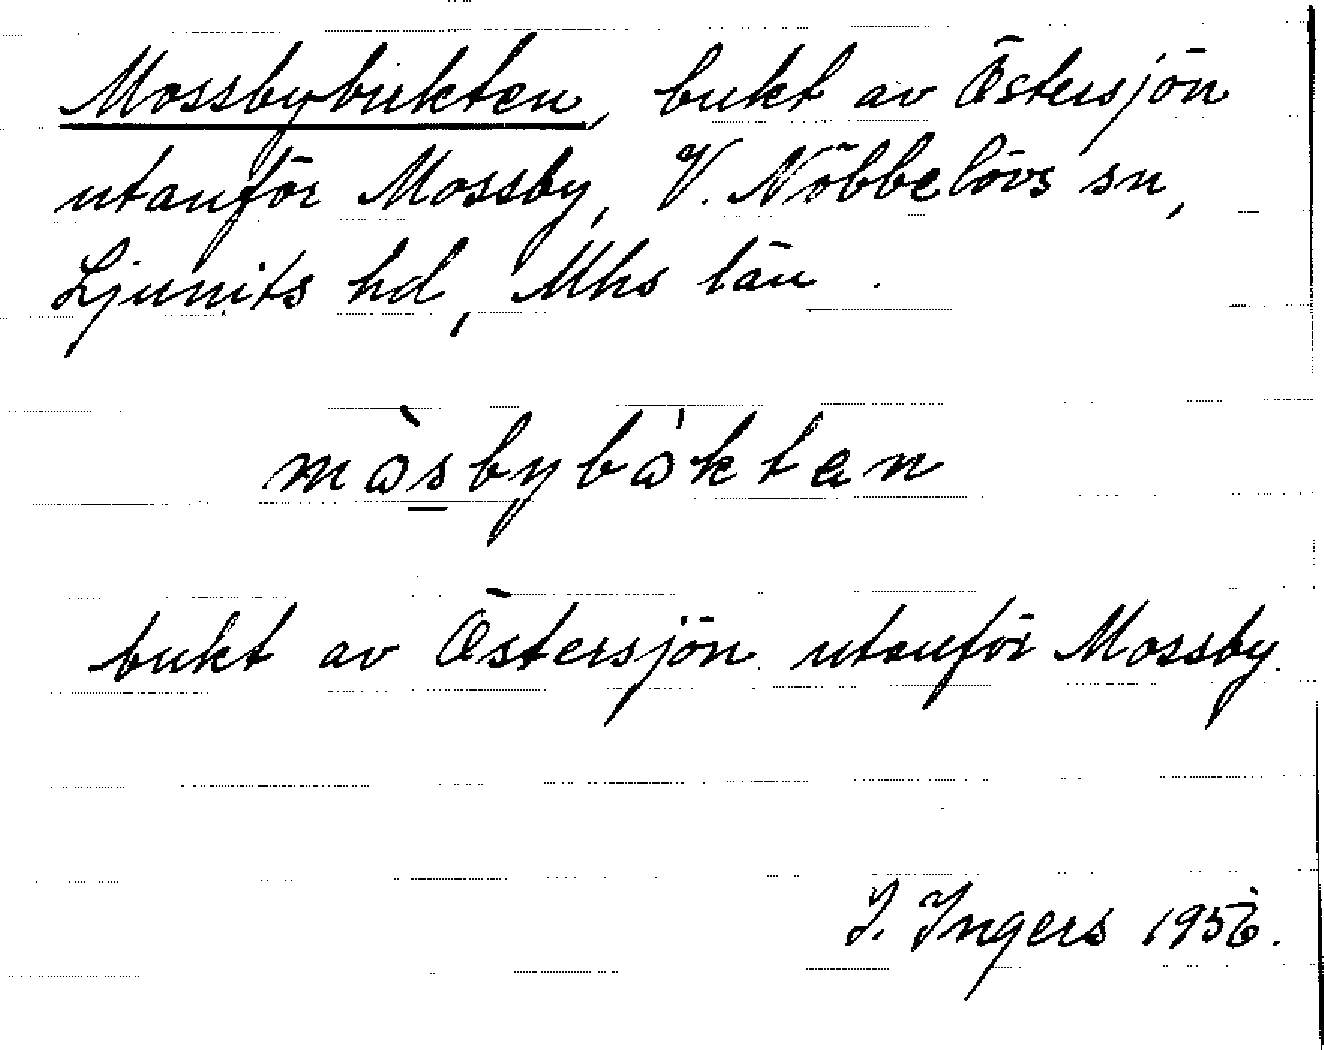 Mossbybukten, bukt av Östersjön
utanför Mossby, V. Nöbbelövs sn,
Ljunits hd, Mhs län.
mòsbybòkten
bukt av Östersjön utanför Mossby.
I. Ingers 1956.